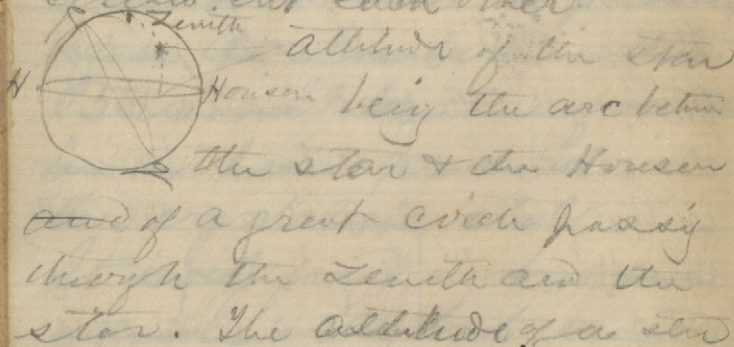 each other.
Zenith
altitude of the star
H Horison being the arc betwn
the star & the Horison
and of a great circle passg
through the Zenith and the
star. The altitude of a star